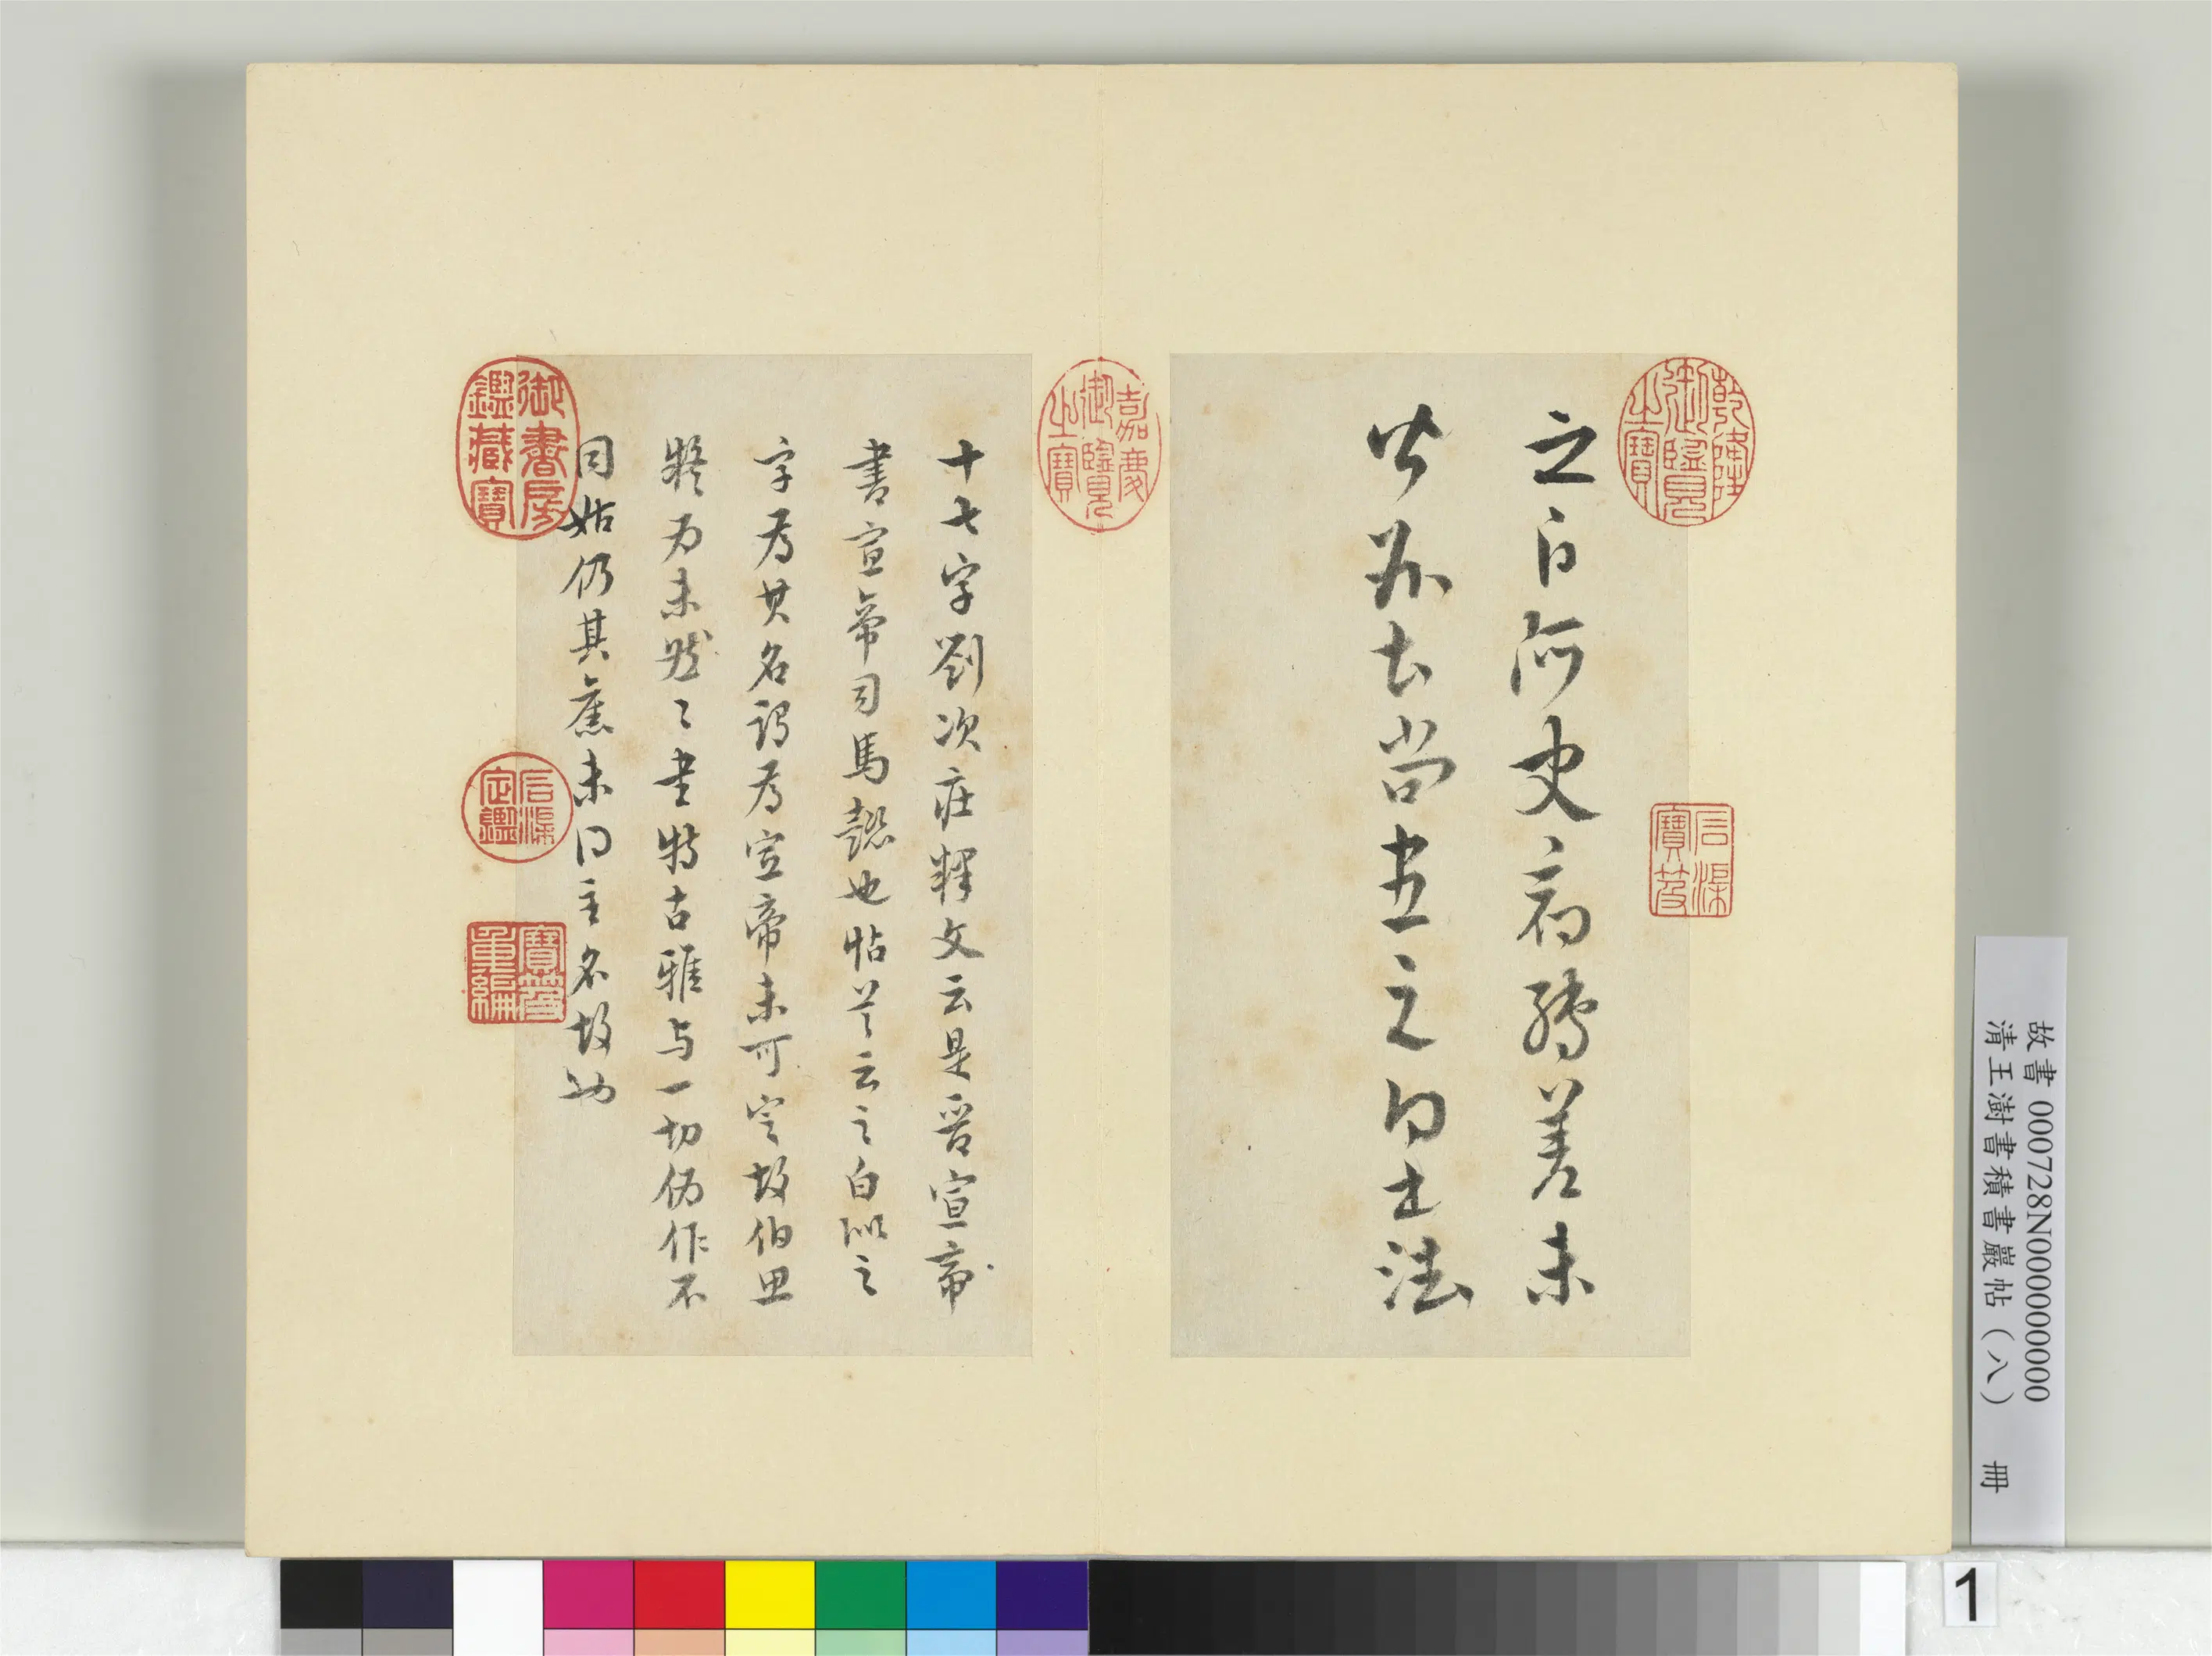 乾隆御覽之寶
石渠寶笈
之白阿史病轉差未
去尚書之白 法
嘉慶御覽之寶
十七字劉次莊釋文云是晉宣帝
書宣帝司馬懿也帖首云之白以之
字為其名謂為宣帝未可定故伯思
疑為未然〻書特古雅与一切偽作不
同姑仍其舊未 主名故
御書房鑑藏寶
石渠定鑑
寶笈重編
故書 000728N000000000
清王澍書積書巖帖（八） 冊
1